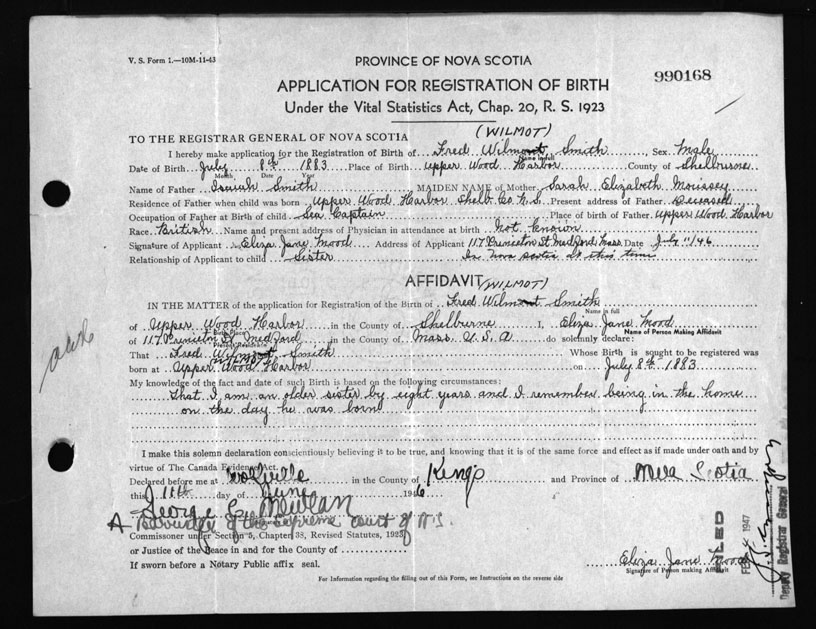 V. S. Form 1.—10M-11-43
PROVINCE OF NOVA SCOTIA
990168
APPLICATION FOR REGISTRATION OF BIRTH
Under the Vital Statistics Act, Chap. 20, R. S. 1923
(WILMOT)
TO THE REGISTRAR GENERAL OF NOVA SCOTIA
I hereby make application for the Registration of Birth of Fred Wilmont Smith Sex Male
Name in full
Date of Birth July 8th 1883 Place of Birth Upper Wood Harbor County of Shelburne
Month Date Year
Name of Father Isaiah Smith MAIDEN NAME of Mother Sarah Elizabeth
Residence of Father when child was born Upper Wood Harbor Shelb. Co. N.S. Present address of Father Deceased
Occupation of Father at Birth of child Sea Captain Place of birth of Father Upper Wood Harbor
Race British Name and present address of Physician in attendance at birth Not known
Signature of Applicant Eliza Jane Mood Address of Applicant 117 Princeton St Medford Mass Date July 11/46
Relationship of Applicant to child Sister In nova scotia at this time
AFFIDAVIT (WILMOT)
IN THE MATTER of the application for Registration of the Birth of Fred Wilmont Smith
Name in full
of Upper Wood Harbor in the County of Shelburne I, Eliza Jane Mood
Birth Place Name of Person Making Affidavit
of 117 Princeton St Medford in the County of Mass. U.S.A do solemnly declare:
That Fred Wilmont Smith Whose Birth is sought to be registered was
WILMOT
born at Upper Wood Harbor on July 8th 1883
My knowledge of the fact and date of such Birth is based on the following circumstances:
That I am an older sister by eight years and I remember being in the home
on the day he was born
I make this solemn declaration conscientiously believing it to be true, and knowing that it is of the same force and effect as if made under oath and by
virtue of The Canada Evidence Act.
Declared before me at Wolfville in the County of Kings and Province of Nova Scotia
this 11th day of June 1946
George C.
A Barrister of the Supreme Court of N.S.
Commissioner under Section 5, Chapter 38, Revised Statutes, 1923
or Justice of the Peace in and for the County of
If sworn before a Notary Public affix seal.
Eliza Jane Mood
Signature of Person making Affidavit
For information regarding the filling out of this Form, see Instructions on the reverse side
FILED
FEB 4 1947
Deputy Registrar General